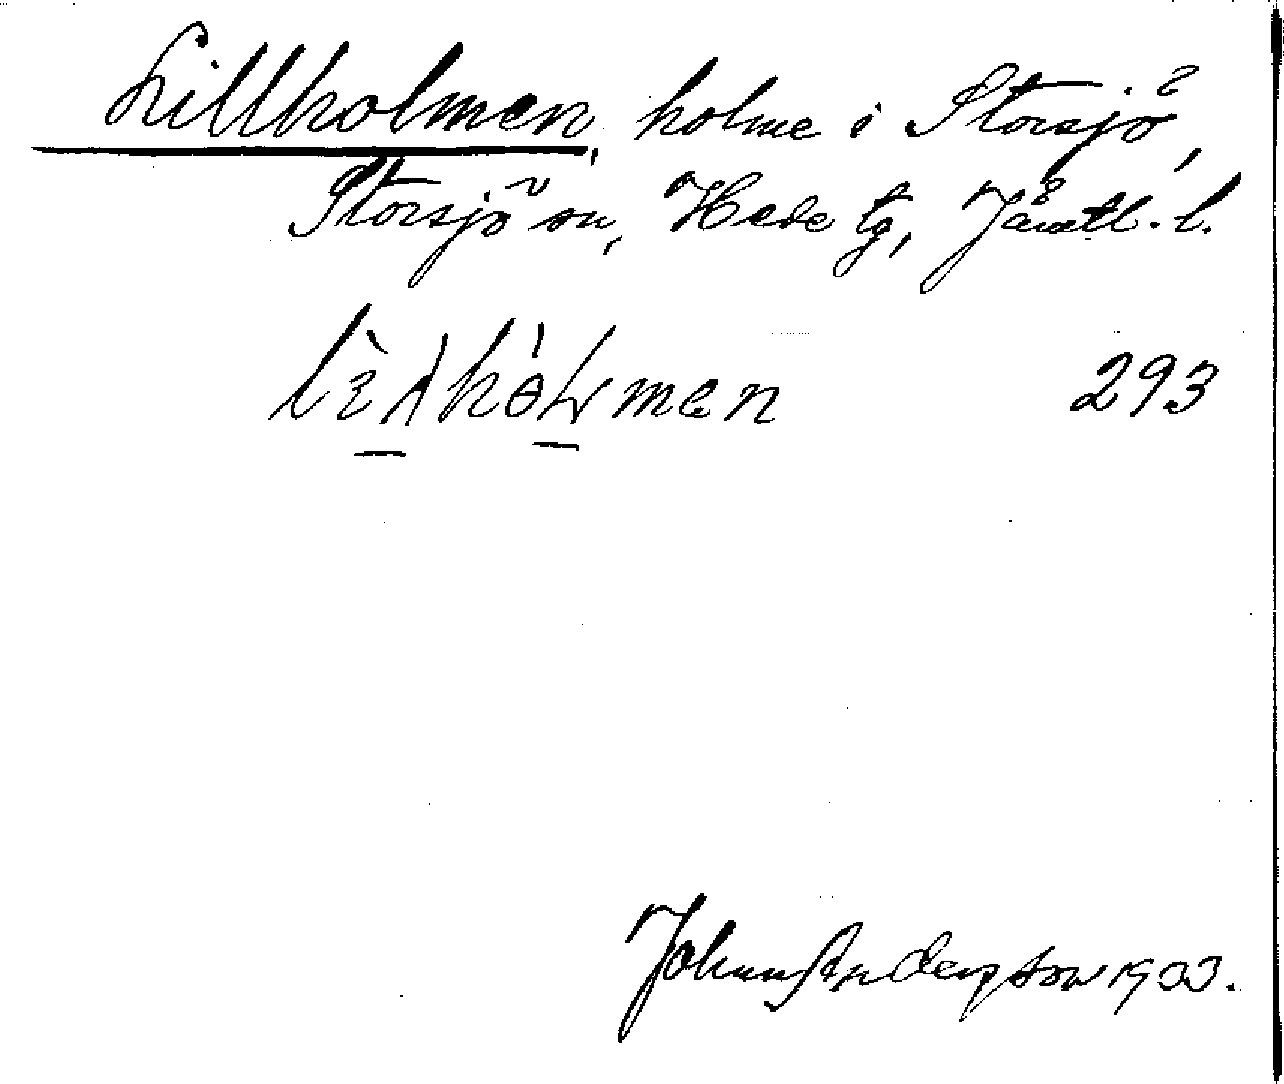 Lillholmen, holme i Storsjö,
Storsjö sn, Hede tg, Jämtl. l.
293
John Andersson 1933.